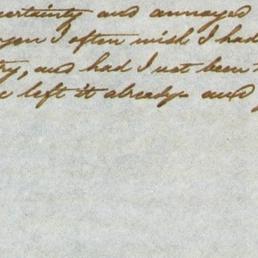 certainty and annoyed
you I often wish I had
ty, and had I not been
left it already and